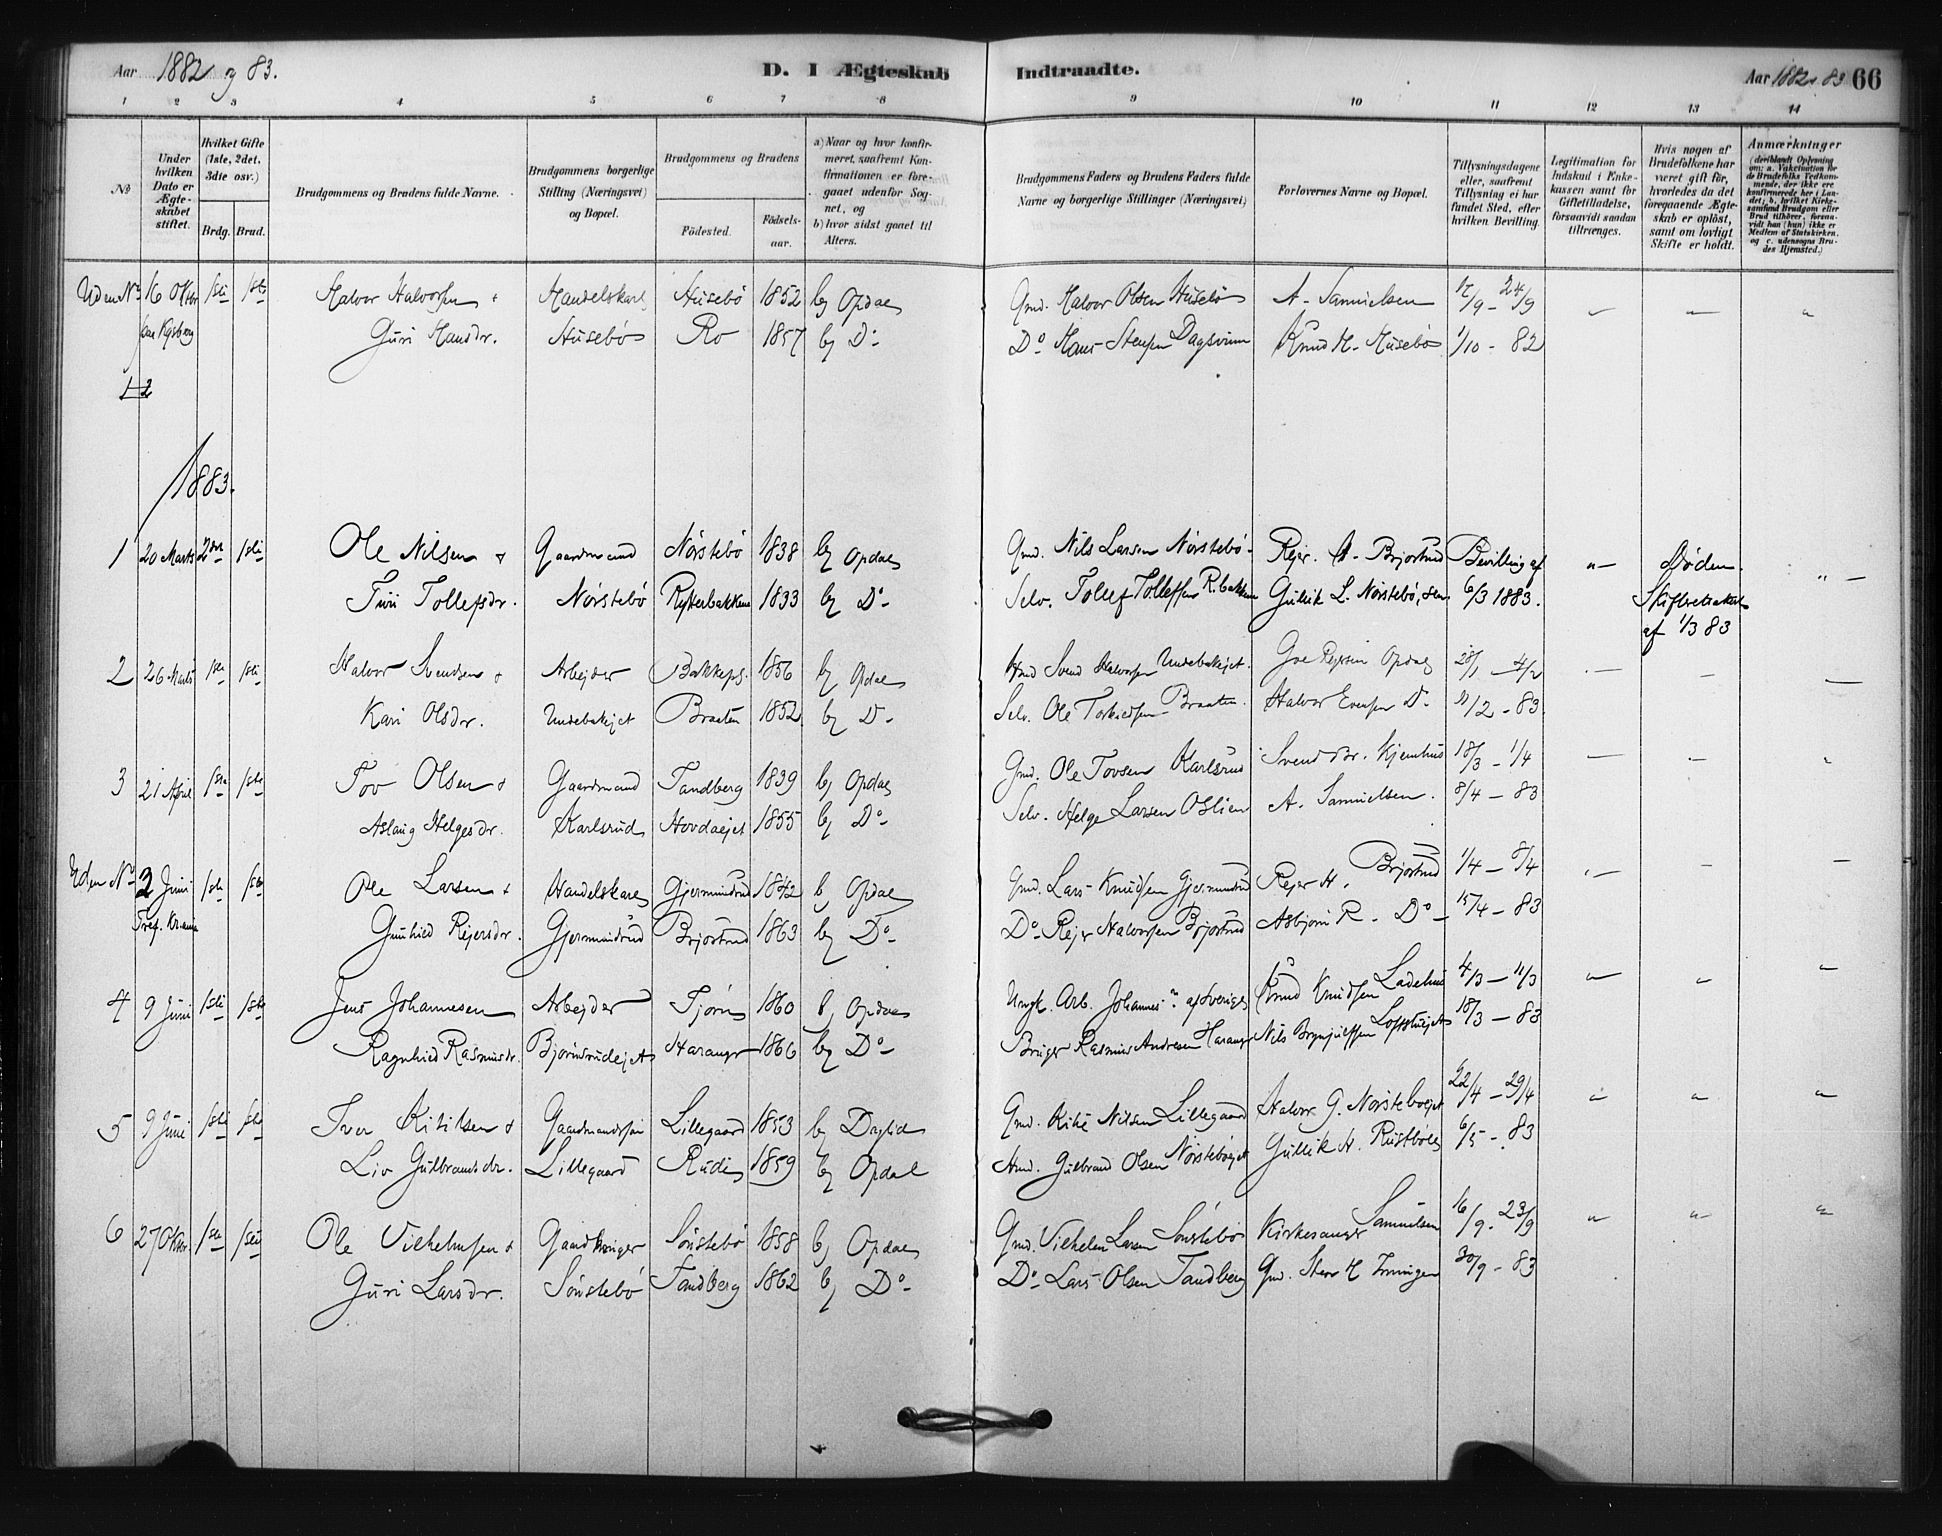 Aar 1882 og 83.
D. I Ægteskab Indtraadte.
Aar 1882 83 66
1 2 3 4 5 6 7 8 9 10 11 12 13 14
No
Under hvilken Dato er Ægteskabet stiftet.
Hvilket Gifte (1ste, 2det, 3die osv.)
Brdg. Brud.
Brudgommens og Brudens fulde Navne.
Brudgommens borgerlige Stilling (Næringsvei) og Bopæl.
Brudgommens og Brudens
Födested.
Födselsaar.
a) Naar og hvor konfirmeret, saafremt Konfirmationen er foregaaet udenfor Sognet, og
b) hvor sidst gaaet til Alters.
Brudgommens Faders og Brudens Faders fulde Navne og borgerlige Stillinger (Næringsvei)
Forlovernes Navne og Bopæl.
Tillysningsdagene eller, saafremt Tillysning ei har fundet Sted, efter hvilken Bevilling.
Legitimation for Indskud i Enkekassen samt for Giftetilladelse, forsaavidt saadan tiltrænges.
Hvis nogen af Brudefolkene har været gift før, hvorledes da det foregaaende Ægteskab er oplöst, samt om lovligt Skifte er holdt.
Anmærkninger (deriblandt Oplysning om: a. Vakcination for de Brudefolks Vedkommende, der ikke ere konfirmerede her i Landet; b. hvilket Kirkesamfund Brudgom eller Brud tilhörer, forsaavidt han (hun) ikke er Medlem af Statskirken, og c. udensogns Brudes Hjemsted.)
Uden No 16 Oktbr 1ste 1ste Halvor Halvorsen + Handelskarl Husebö 1852 b) Opdal Gmd. Halvor Olsen Husebö A. Samuelsen 17/9 - 24/9
Guri Hansdr. Husebö Ro 1857 b) Do Do Hans Steensen Dagsvim Knud H. Husebö 1/10 - 82
12
1883.
1 20 Marts 2den 1ste Ole Nilsen + Gaardmand Nörstebö 1838 b) Opdal Gmd. Nils Larsen Nörstebö Rejer. H. Brjotrud Bevilling af Döden.
Turi Tollefsdr. Nörstebö Rytterbakken 1833 b) Do Selv. Tollef Tollefsen R.bakken Gullik L. Nörstebö, sen. 6/3 1883. Skifteretsakt
af 1/3 83
2 26 Marts 1ste 1ste Halvor Svendsen + Arbejder 1856 b) Opdal Svend Halvorsen Opdal 28/1 - 4/2
Kari Olsdr. Braaten 1852 b) Do Selv. Ole Torkildsen Braaten. Halvor Evensen Do 11/2 - 83
3 21 April 1ste 1ste Tov Olsen + Gaardmand Tandberg 1839 b) Opdal Gmd. Ole Tovsen Karlsrud Svend Br. Kjemhus 18/3 - 1/4
Aslaug Helgesdr. Karlsrud Hovdaejet 1855 b) Do Selv. Helge Larsen Oslien A. Samuelsen. 8/4 - 83
Uden No 2 Juni 1ste 1ste Ole Larsen + Handelskarl Gjermundrud 1842 b) Opdal Gmd. Lars Knudsen Gjermundrud Rejer H. Brjotrud 1/4 - 8/4
Gunhild Rejersdr. Gjermundrud Brjotrud 1863 b) Do Do Rejer Halvorsen Brjotrud Asbjörn R. Do 15/4 - 83
4 9 Juni 1ste 1ste Jens Johannesen Arbejder Tjörn 1860 b) Opdal Ungk. Arb. Johannes af Sverige Knud Knudsen Ladehus 4/3 - 11/3
Ragnhild Rasmusdr. Björnsrudejet Harangr 1866 b) Do Bruger Rasmus Andresen Harangr Nils Brynjulfsen 18/3 - 83
5 9 Juni 1ste 1ste Iver Kitilsen + Gaardmandssön Lillegaard 1853 b) Daglid Gmd. Kitil Nilsen Lillegaard Halvor G. Nörsteböejet 22/4 - 29/4
Liv Gulbransdr. Lillegaard Rudi 1859 b) Opdal Hmd. Gulbrand Olsen Nörsteböejet Gullik H. 6/5 - 83
6 27 Oktbr 1ste 1ste Ole Vilhelmsen + Gaardbruger Sönstebö 1858 b) Opdal Gmd. Vilhelm Larsen Sönstebö Kirkesanger Samuelsen 16/9 - 23/9
Guri Larsdr. Sönstebö Tandberg 1862 b) Do Do Lars Olsen Tandberg Gmd. Sten H. 30/9 - 83